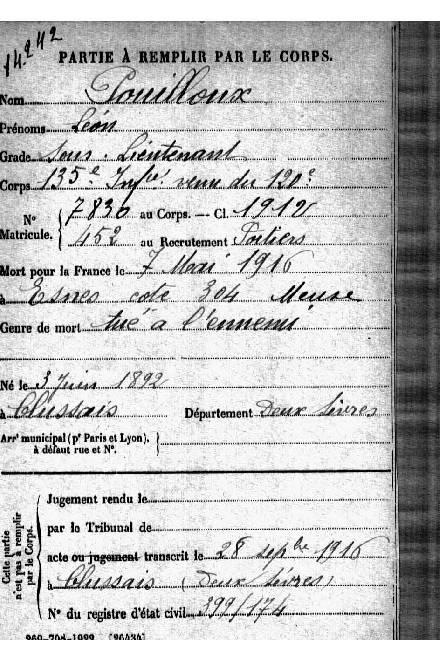 14.242
PARTIE À REMPLIR PAR LE CORPS.
Nom Pouilloux
Prénoms Léon
Grade Sous-Lieutenant
Corps 135e Infie venu du 120e
N° Matricule. { 7830 au Corps. — Cl. 1912
452 au Recrutement Poitiers
Mort pour la France le 7 Mai 1916
à Esnes cote 304 Meuse
Genre de mort tué à l'ennemi
Né le 3 Juin 1892
à Clussais Département Deux Sèvres
Arrt municipal (pr Paris et Lyon),
à défaut rue et N°.
Cette partie n'est pas à remplir par le Corps.
Jugement rendu le
par le Tribunal de
acte ou jugement transcrit le 28 septbre 1916
à Clussais (Deux Sèvres)
N° du registre d'état civil 399/174
969-708-1922. [26434]